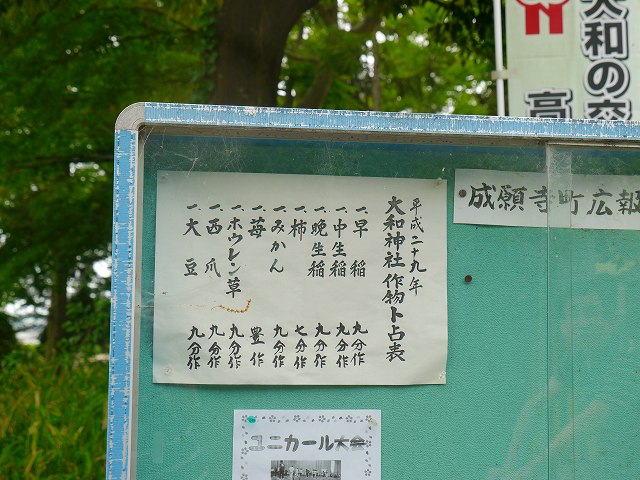 平成二十九年
大和神社作物卜占表
一、早稲 九分作
一、中生稲 九分作
一、晩生稲 九分作
一、柿 七分作
一、みかん 九分作
一、苺 豊作
一、ホウレン草 九分作
一、西瓜 九分作
一、大豆 九分作
・成願寺町広報
ユニカール大会
大和の
高